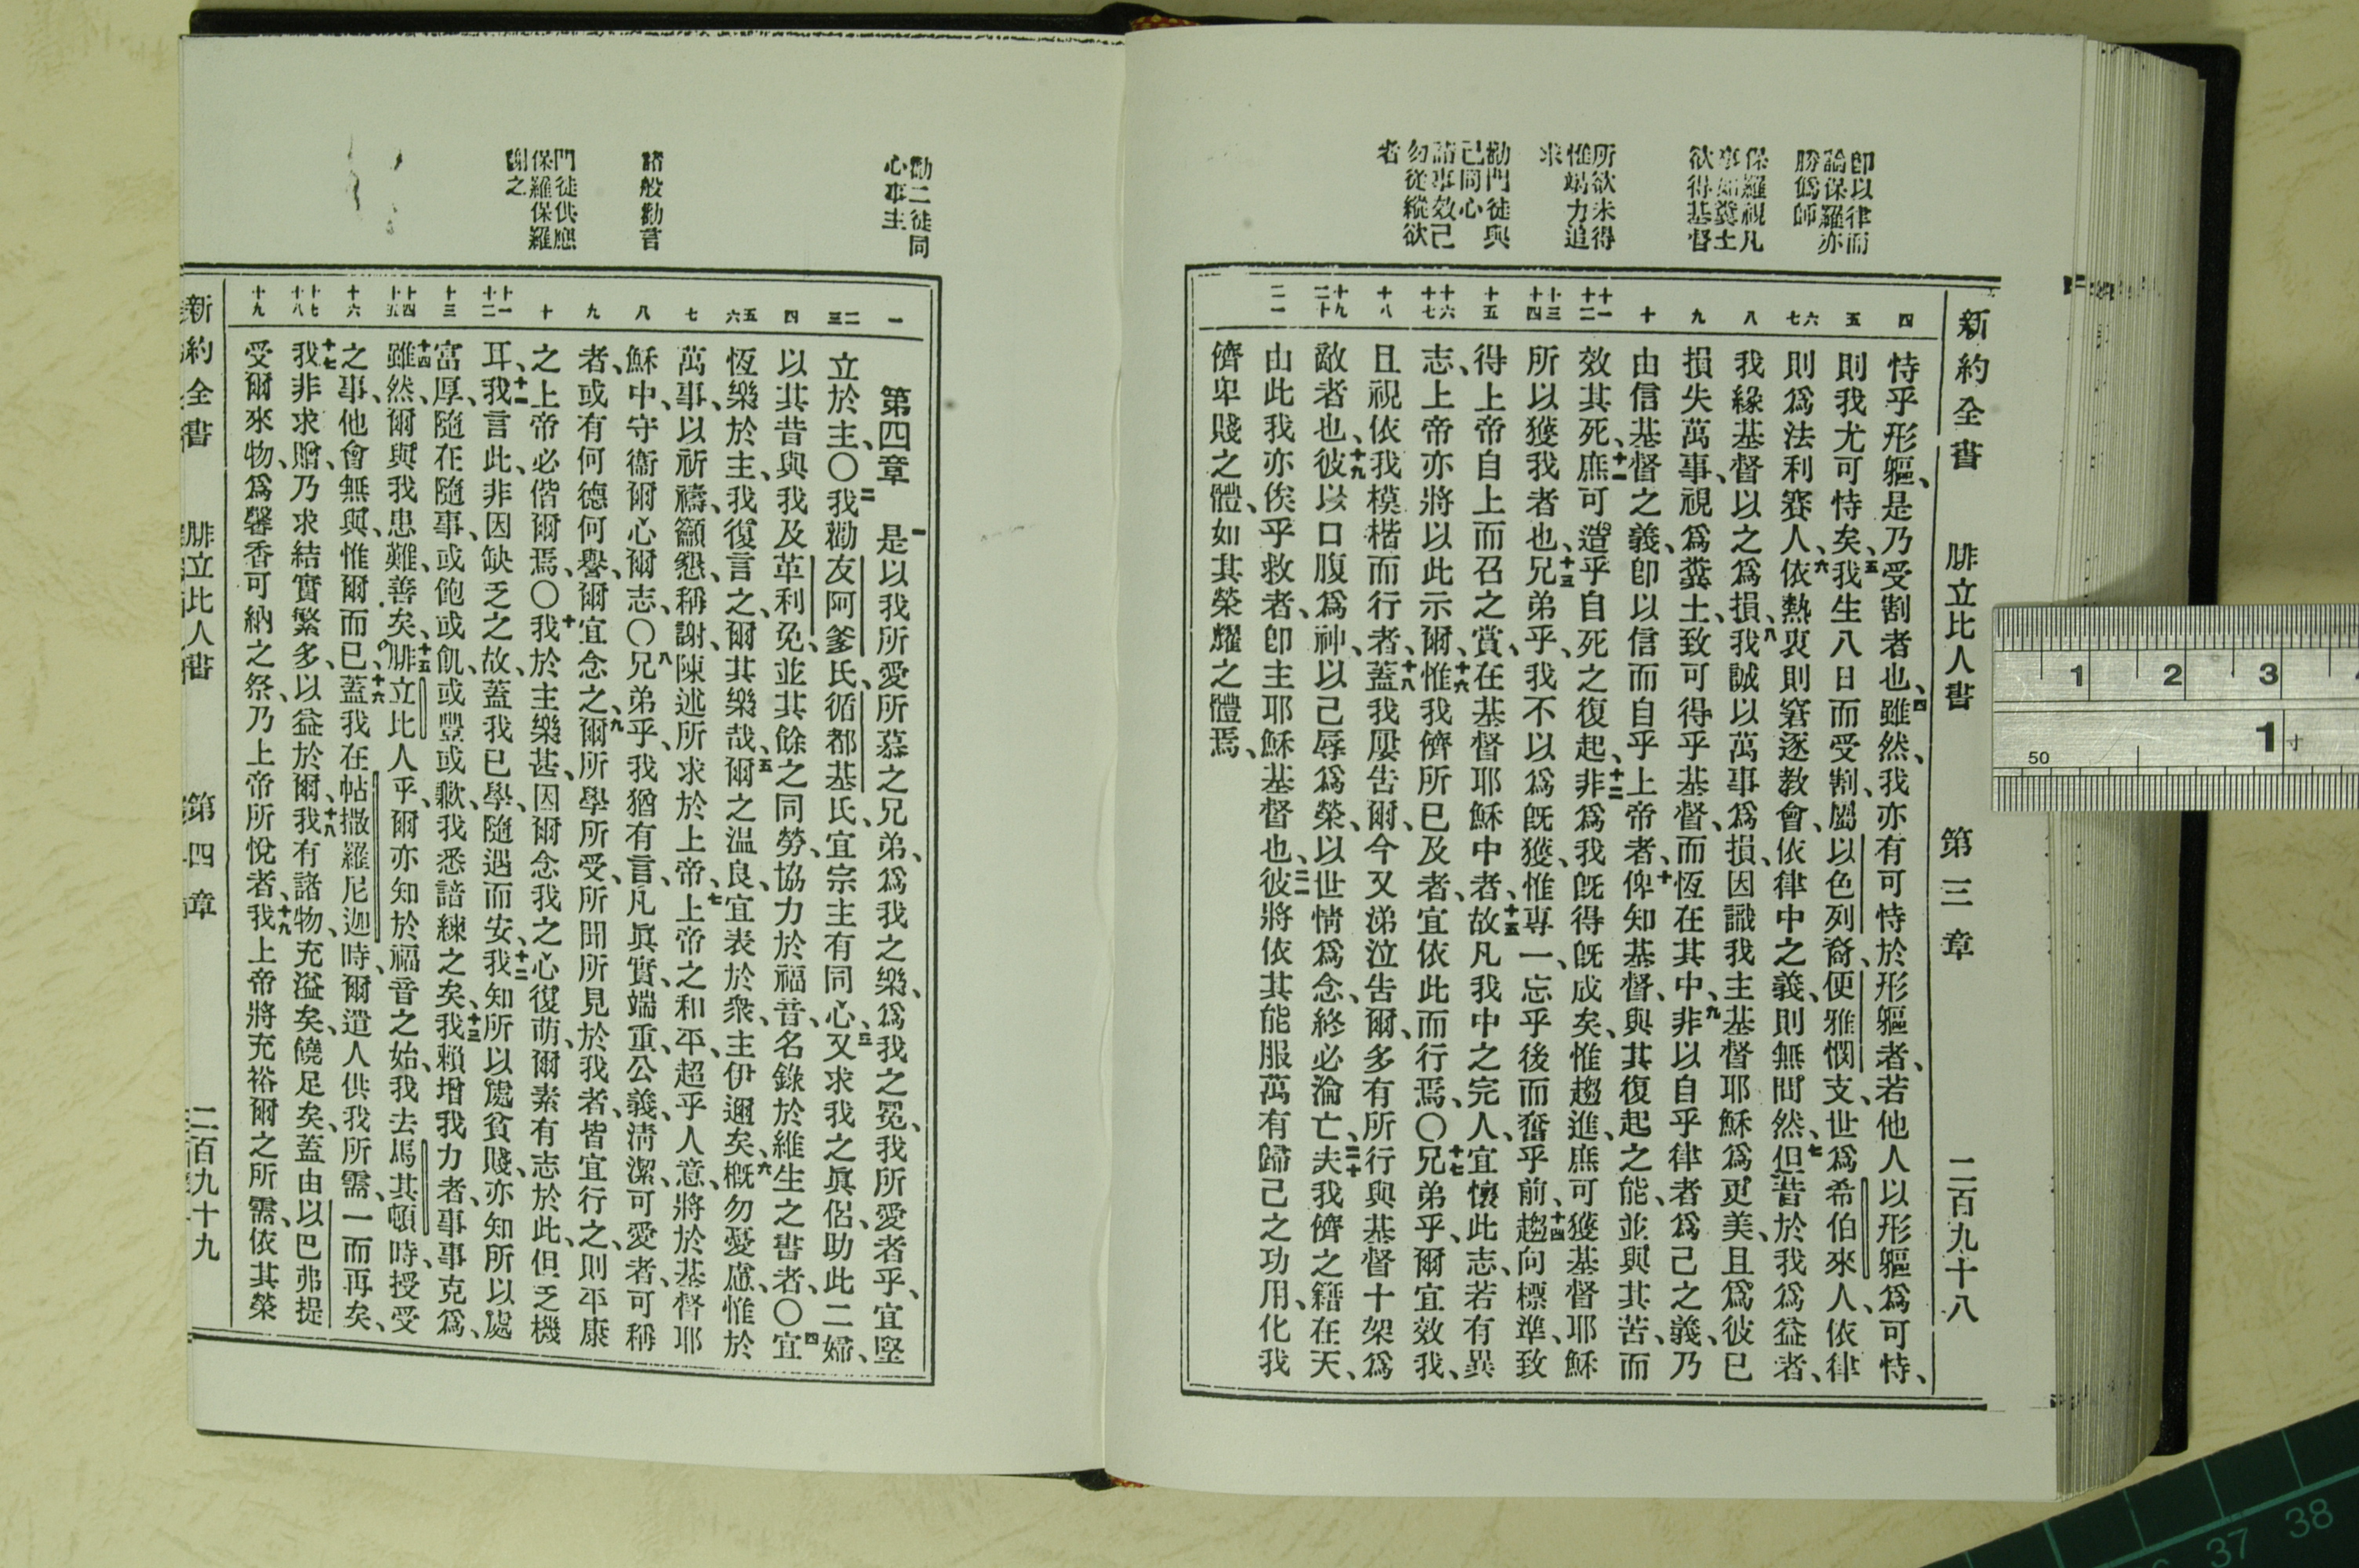 新約全書 腓立比人書 第三章 二百九十八
即以律而
論保羅亦
勝僞師
保羅視凡
事如糞土
欲得基督
所欲未得
惟竭力追
求
勸門徒與
己同心
諸事效己
勿從縱欲
者
四
五
六七
八
九
十
十一十二
十三十四
十五
十六十七
十八
十九二十
二一
恃乎形軀、是乃受割者也、四雖然、我亦有可恃於形軀者、若他人以形軀爲可恃、
則我尤可恃矣、五我生八日而受割、屬以色列裔、便雅憫支、世爲希伯來人、依律
則爲法利賽人、六依熱衷則窘逐教會、依律中之義、則無間然、七但昔於我爲益者、
我緣基督以之爲損、八我誠以萬事爲損、因識我主基督耶穌爲更美、且爲彼已
損失萬事、視爲糞土、致可得乎基督、而恆在其中、九非以自乎律者爲己之義、乃
由信基督之義、即以信而自乎上帝者、十俾知基督、與其復起之能、並與其苦、而
效其死、十一庶可造乎自死之復起、十二非爲我既得既成矣、惟趨進、庶可獲基督耶穌
所以獲我者也、十三兄弟乎、我不以爲既獲、惟專一、忘乎後而奮乎前、十四趨向標準、致
得上帝自上而召之賞、在基督耶穌中者、十五故凡我中之完人、宜懷此志、若有異
志、上帝亦將以此示爾、十六惟我儕所已及者、宜依此而行焉、〇十七兄弟乎、爾宜效我、
且視依我模楷而行者、十八蓋我屢告爾、今又涕泣告爾、多有所行與基督十架爲
敵者也、十九彼以口腹爲神、以己辱爲榮、以世情爲念、終必淪亡、二十夫我儕之籍在天、
由此我亦俟乎救者、即主耶穌基督也、二一彼將依其能服萬有歸己之功用、化我
儕卑賤之體、如其榮耀之體焉、
勸二徒同
心事主
諸般勸言
門徒供應
保羅保羅
謝之
一
二三
四
五六
七
八
九
十
十一十二
十三
十四十五
十六
十七十八
十九
第四章 一是以我所愛所慕之兄弟、爲我之樂、爲我之冕、我所愛者乎、宜堅
立於主、〇二我勸友阿爹氏、循都基氏、宜宗主有同心、三又求我之眞侶、助此二婦、
以其昔與我及革利免、並其餘之同勞、協力於福音、名錄於維生之書者、〇四宜
恆樂於主、我復言之、爾其樂哉、五爾之温良、宜表於衆、主伊邇矣、六概勿憂慮、惟於
萬事、以祈禱、籲懇、稱謝、陳述所求於上帝、七上帝之和平、超乎人意、將於基督耶
穌中、守衞爾心爾志、〇八兄弟乎、我猶有言、凡眞實、端重、公義、清潔、可愛者、可稱
者、或有何德何譽、爾宜念之、九爾所學所受、所聞所見於我者、皆宜行之、則平康
之上帝必偕爾焉、〇十我於主樂甚、因爾念我之心復萌、爾素有志於此、但乏機
耳、十一我言此、非因缺乏之故、蓋我已學、隨遇而安、十二我知所以處貧賤、亦知所以處
富厚、隨在隨事、或飽或飢、或豐或歉、我悉諳練之矣、十三我賴增我力者、事事克爲、
十四雖然、爾與我患難、善矣、十五腓立比人乎、爾亦知於福音之始、我去馬其頓時、授受
之事、他會無與、惟爾而已、十六蓋我在帖撒羅尼迦時、爾遣人供我所需、一而再矣、
十七我非求贈、乃求結實繁多、以益於爾、十八我有諸物、充溢矣、饒足矣、蓋由以巴弗提
受爾來物、爲馨香可納之祭、乃上帝所悅者、十九我上帝將充裕爾之所需、依其榮
新約全書 腓立比人書 第四章 二百九十九
1 2 3
50
1寸
37 38